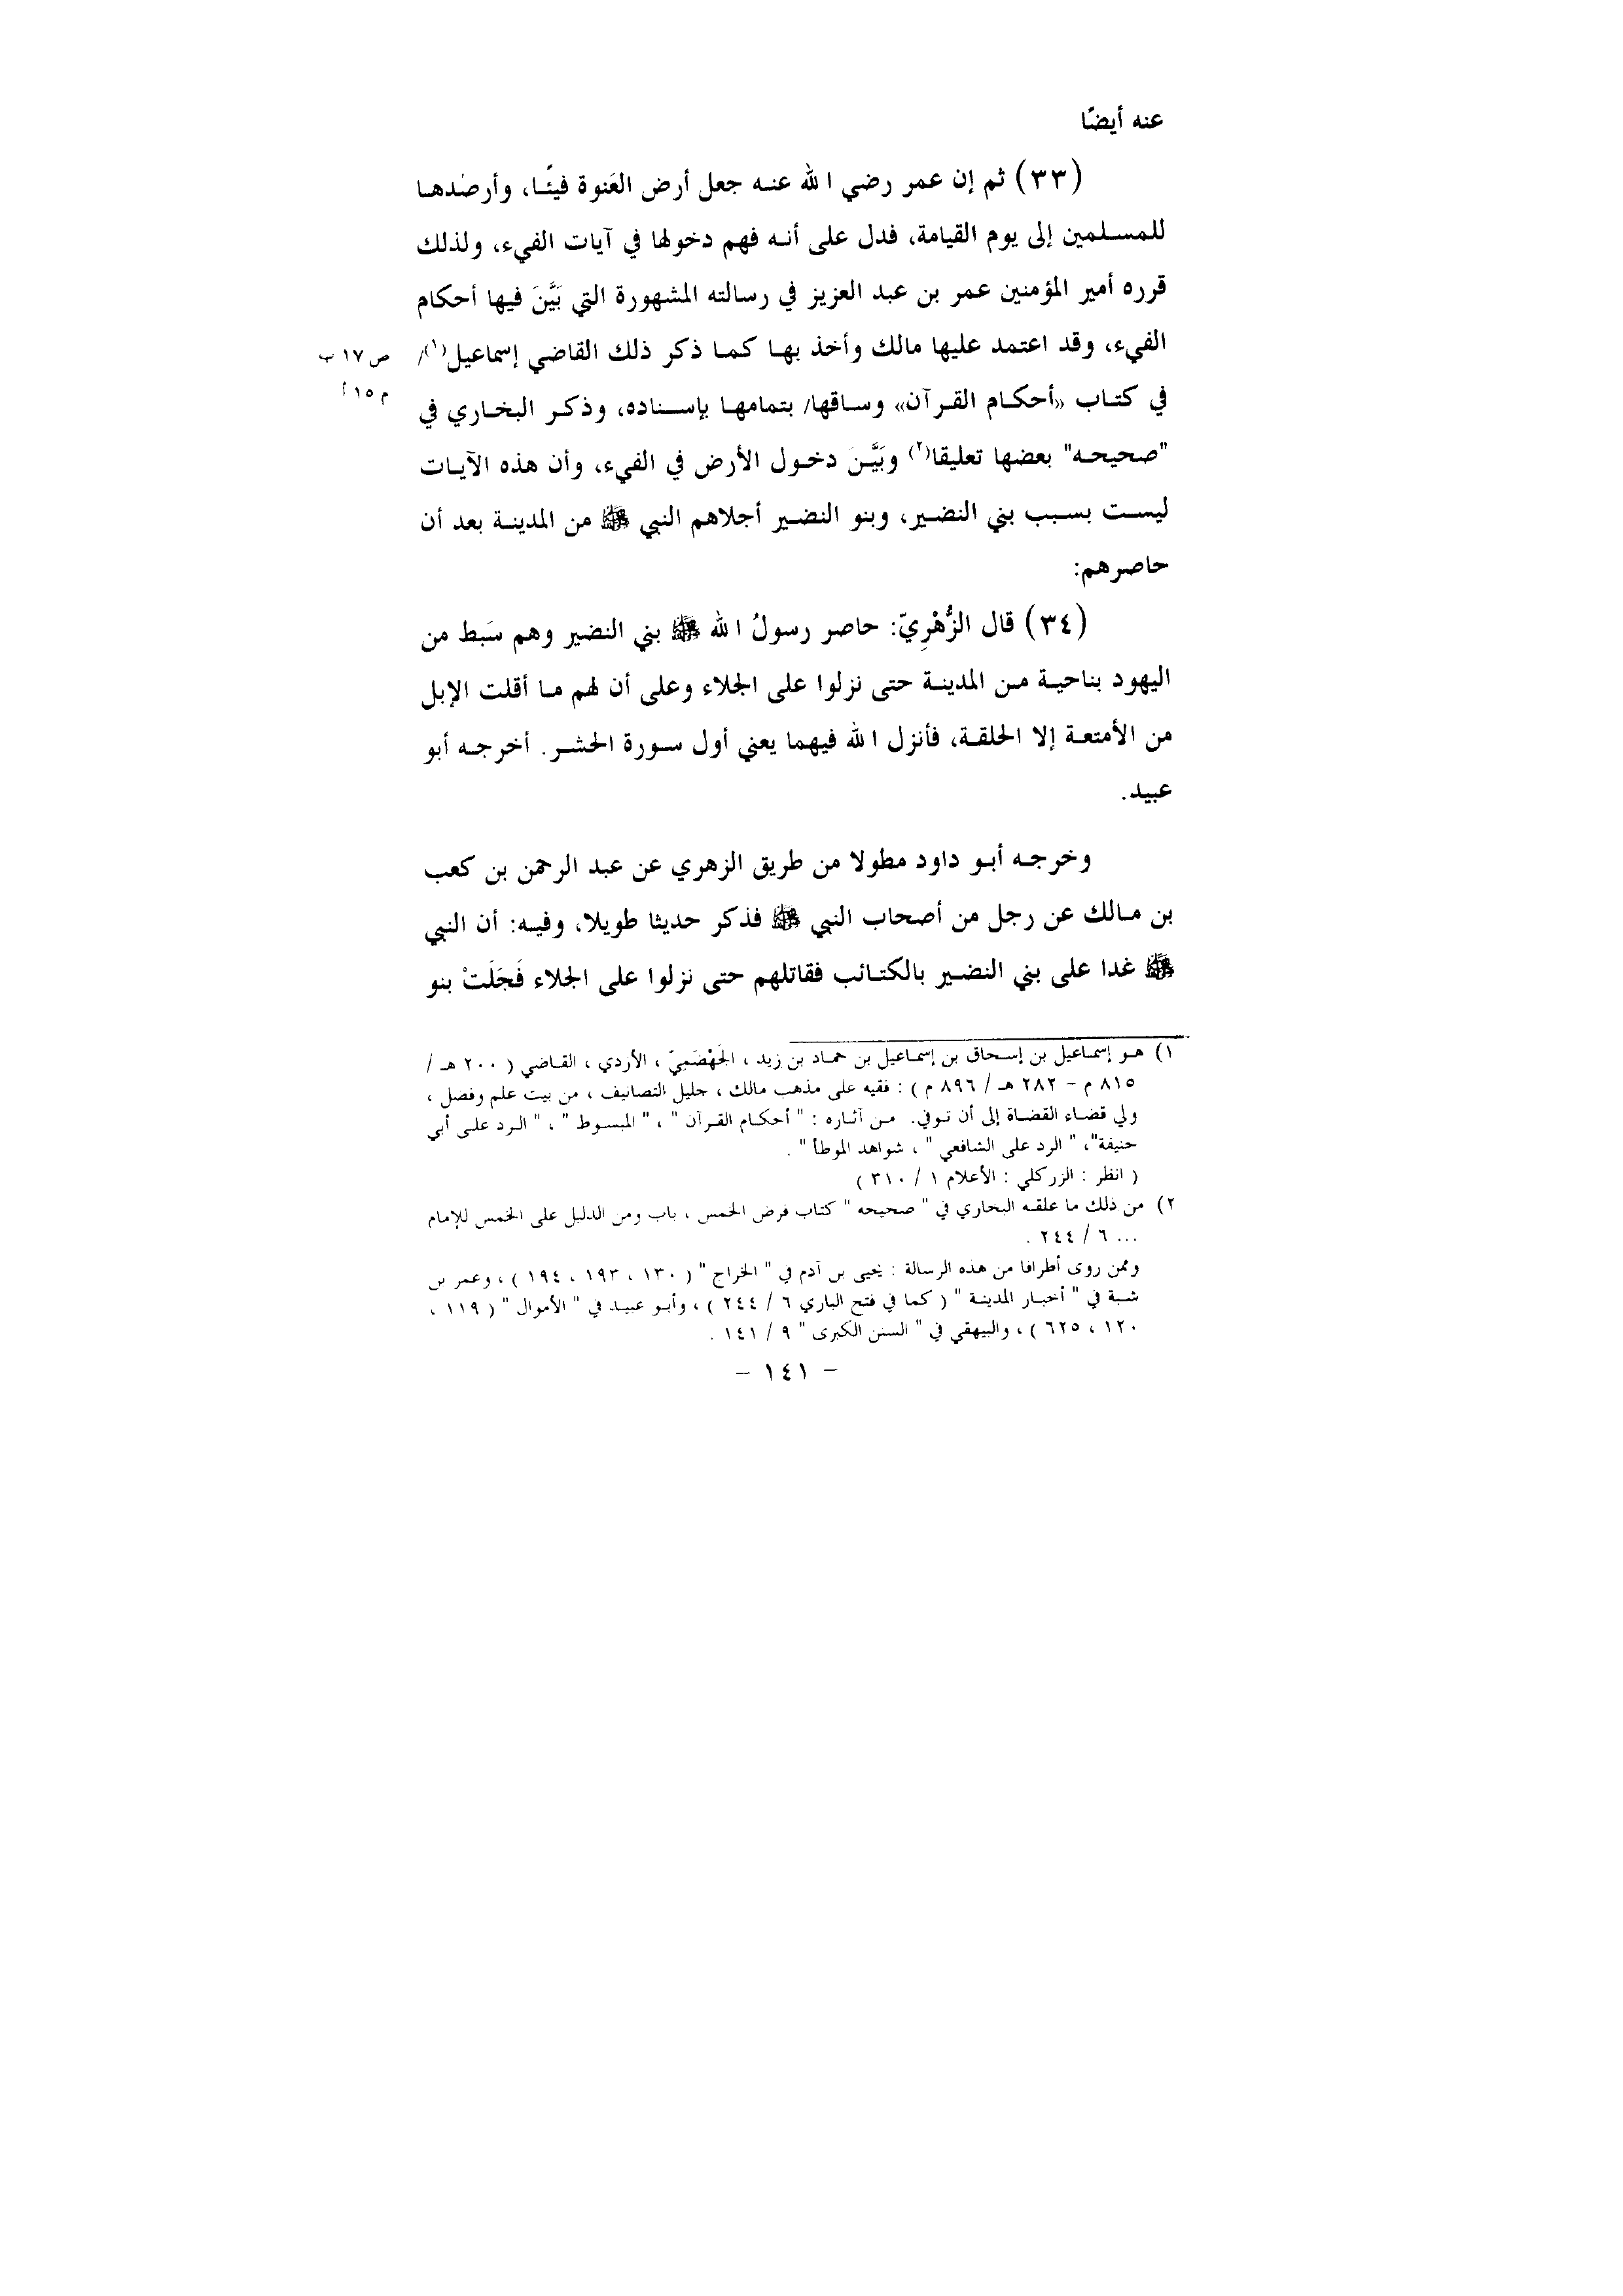 عنه أيضًا
(٣٣) ثم إن عمر رضي الله عنه جعل أرض العَنوة فيئًا، وأرصدها
للمسلمين إلى يوم القيامة، فدل على أنه فهم دخولها في آيات الفيء، ولذلك
قرره أمير المؤمنين عمر بن عبد العزيز في رسالته المشهورة التي بَيَّنَ فيها أحكام
الفيء، وقد اعتمد عليها مالك وأخذ بها كما ذكر ذلك القاضي إسماعيل(١)/
ص ١٧ ب
في كتاب «أحكام القرآن» وساقها/ بتمامها بإسناده، وذكر البخاري في
م ١٥ أ
"صحيحه" بعضها تعليقا(٢) وبَيَّنَ دخول الأرض في الفيء، وأن هذه الآيات
ليست بسبب بني النضير، وبنو النضير أجلاهم النبي ﷺ من المدينة بعد أن
حاصرهم:
(٣٤) قال الزُّهْرِيّ: حاصر رسولُ الله ﷺ بني النضير وهم سَبط من
اليهود بناحية من المدينة حتى نزلوا على الجلاء وعلى أن لهم ما أقلت الإبل
من الأمتعة إلا الحلقة، فأنزل الله فيهما يعني أول سورة الحشر. أخرجه أبو
عبيد.
وخرجه أبو داود مطولا من طريق الزهري عن عبد الرحمن بن كعب
بن مالك عن رجل من أصحاب النبي ﷺ فذكر حديثا طويلا، وفيه: أن النبي
ﷺ غدا على بني النضير بالكتائب فقاتلهم حتى نزلوا على الجلاء فَجَلَتْ بنو
١) هو إسماعيل بن إسحاق بن إسماعيل بن حماد بن زيد ، الجَهْضَمِيّ ، الأزدي ، القاضي ( ٢٠٠ هـ /
٨١٥ م – ٢٨٢ هـ / ٨٩٦ م ) : فقيه على مذهب مالك ، جليل التصانيف ، من بيت علم وفضل ،
ولي قضاء القضاة إلى أن توفي. من آثاره : " أحكام القرآن " ، " المبسوط " ، " الرد على أبي
حنيفة"، " الرد على الشافعي " ، شواهد الموطأ " .
( انظر : الزركلي : الأعلام ١ / ٣١٠ )
٢) من ذلك ما علقه البخاري في " صحيحه " كتاب فرض الخمس ، باب ومن الدليل على الخمس للإمام
... ٦ / ٢٤٤ .
وممن روى أطرافا من هذه الرسالة : يحيى بن آدم في " الخراج " ( ١٣٠ ، ١٩٣ ، ١٩٤ ) ، وعمر بن
شبة في " أخبار المدينة " ( كما في فتح الباري ٦ / ٢٤٤ ) ، وأبو عبيد في " الأموال " ( ١١٩ ،
١٢٠ ، ٦٢٥ ) ، والبيهقي في " السنن الكبرى " ٩ / ١٤١ .
– ١٤١ –